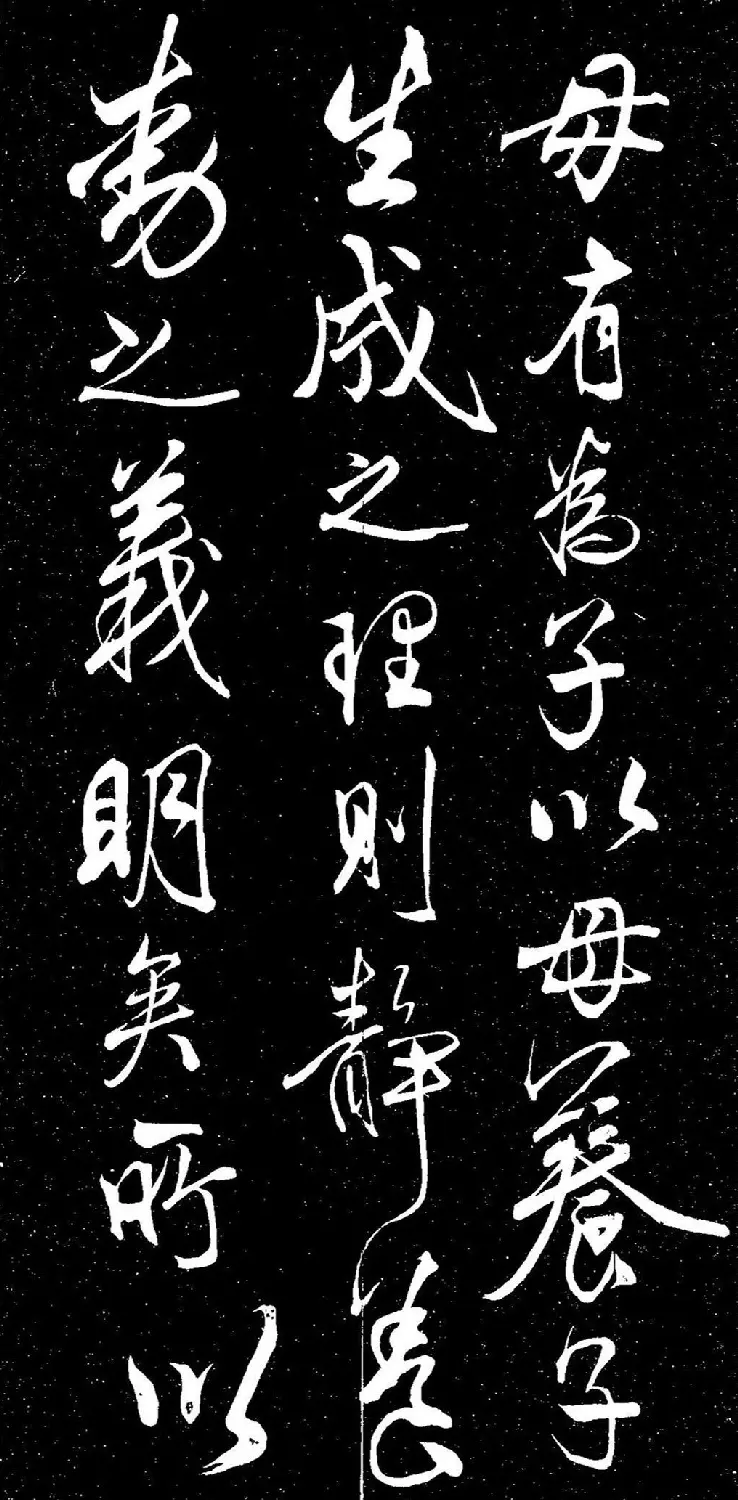 母有為子以母養子
生成之理則靜養
動之義明矣所以